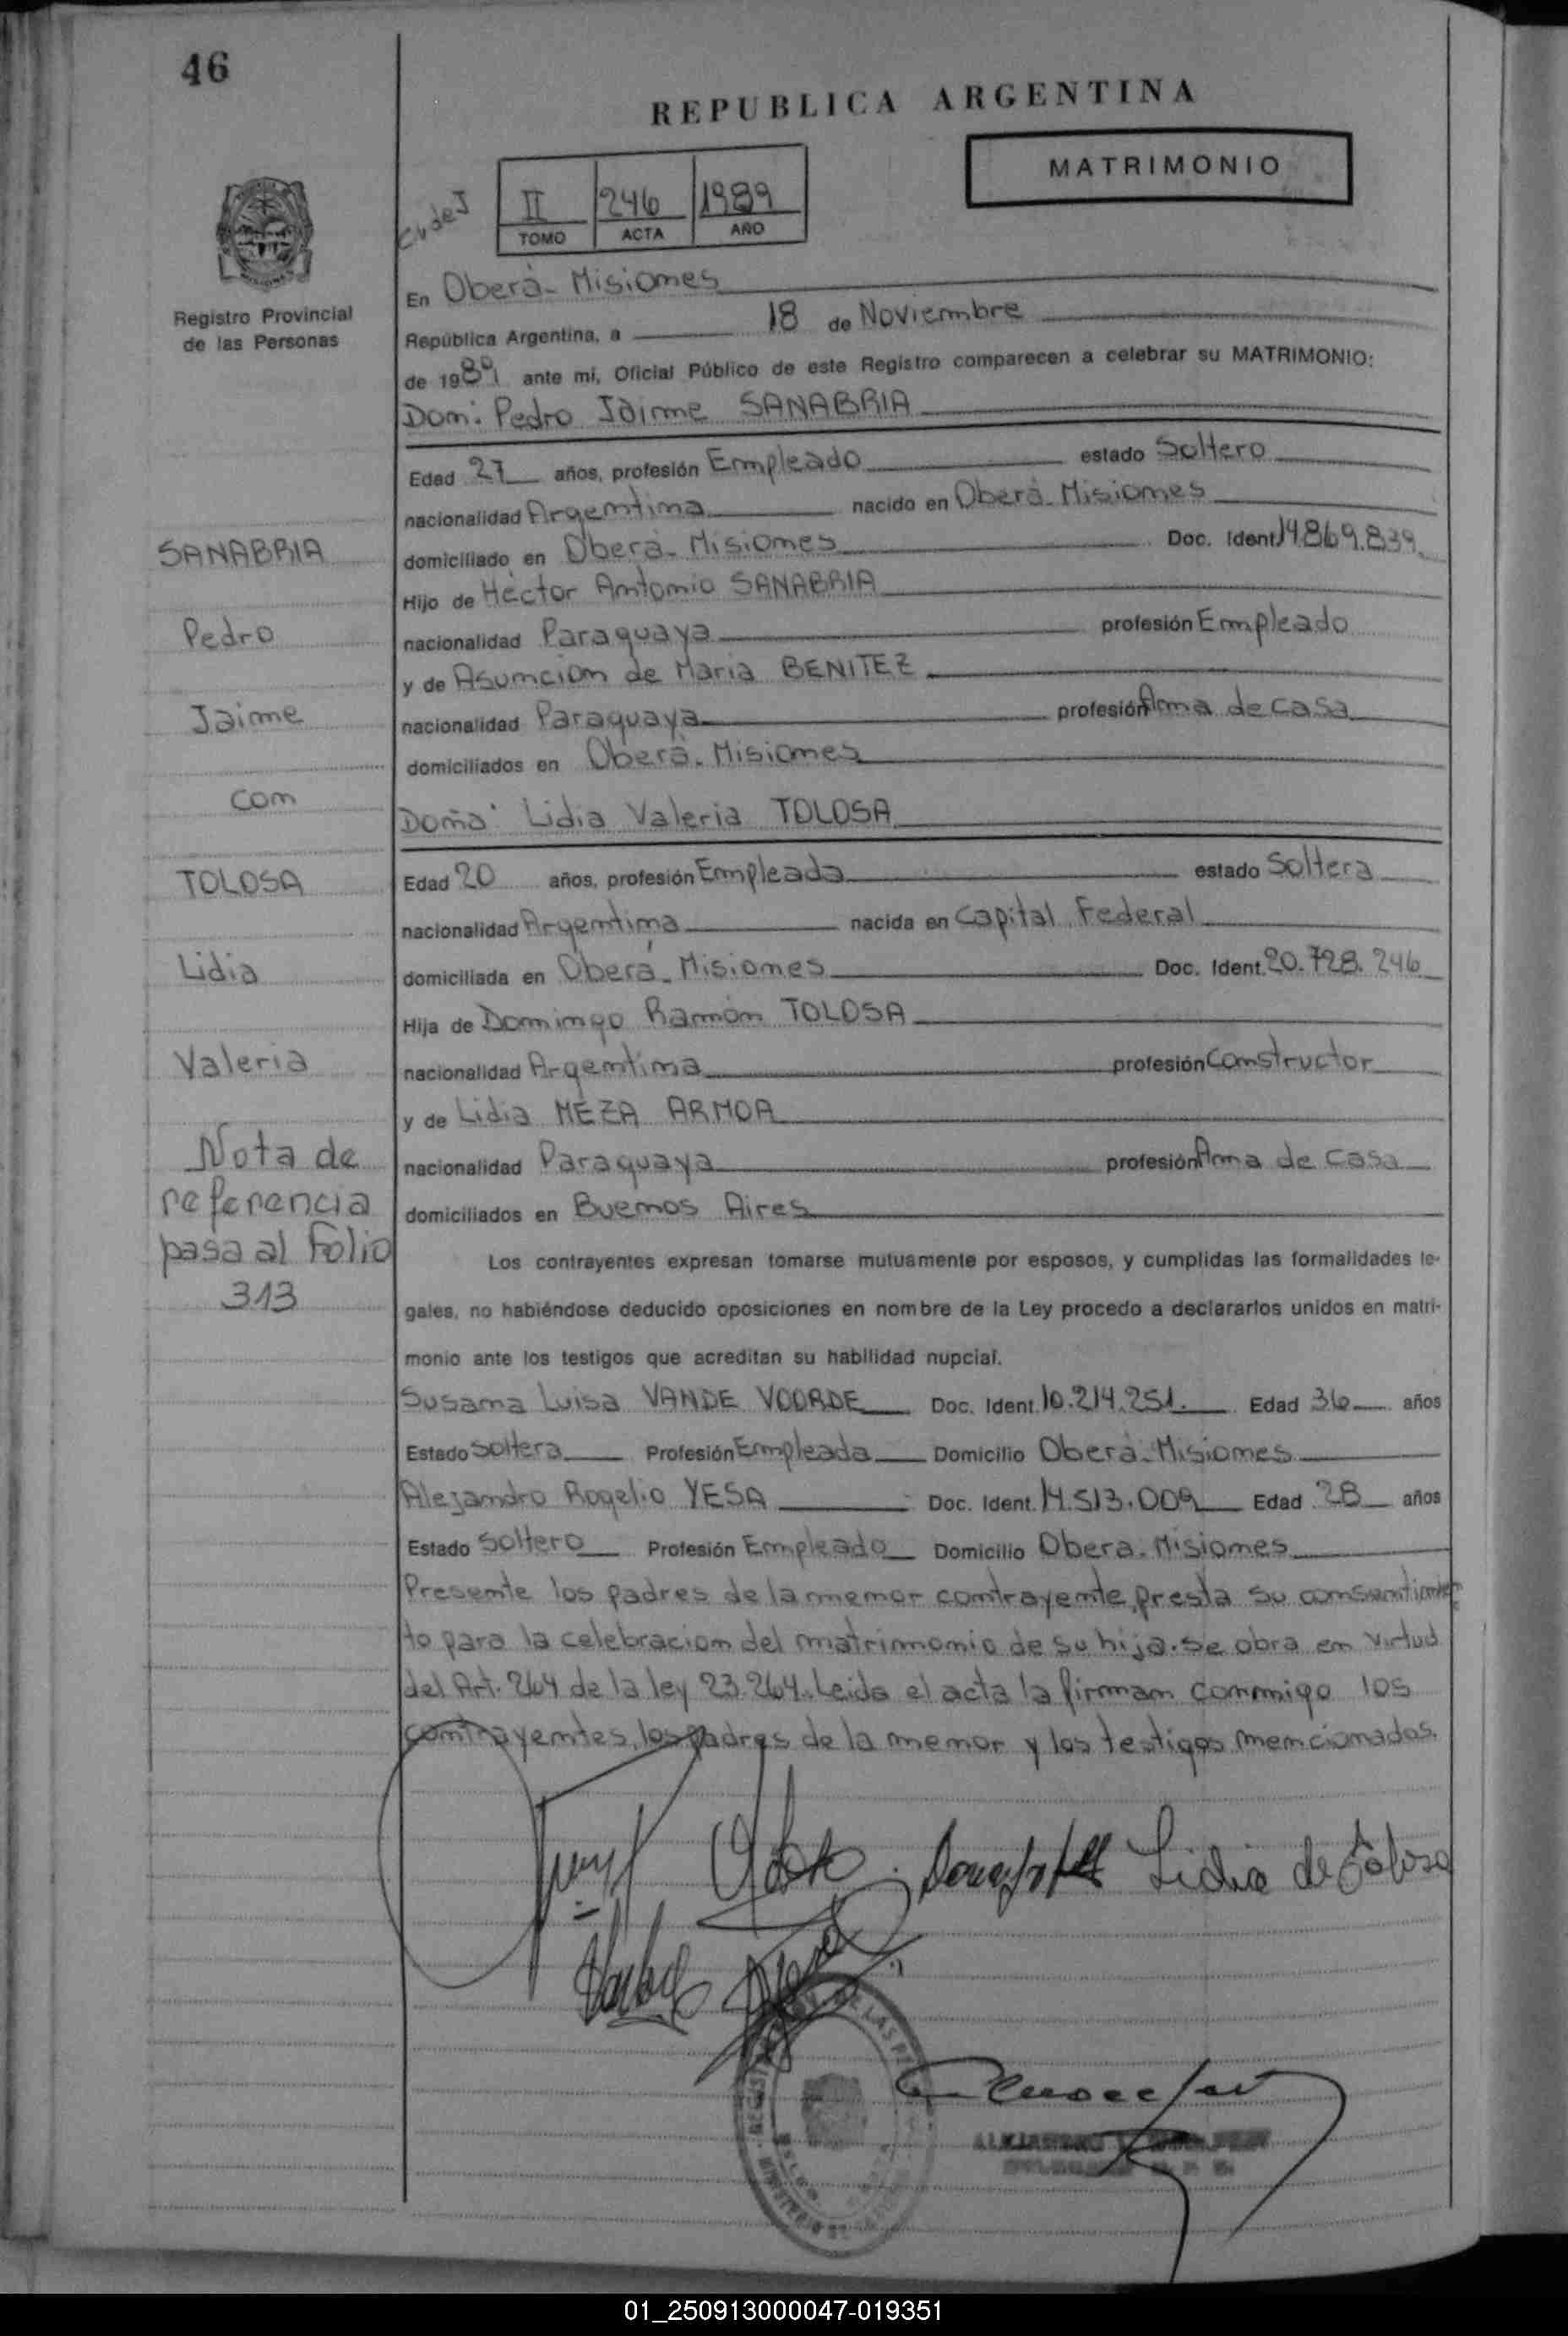 46
REPUBLICA ARGENTINA
MATRIMONIO
II 246 1989
TOMO ACTA AÑO
Registro Provincial
de las Personas
En Oberá - Misiones
República Argentina, a 18 de Noviembre
de 1989 ante mi, Oficial Público de este Registro comparecen a celebrar su MATRIMONIO:
Don: Pedro Jaime SANABRIA
Edad 27 años, profesión Empleado estado Soltero
nacionalidad Argentina nacido en Oberá - Misiones
domiciliado en Oberá - Misiones Doc. Ident. 14.869.839
Hijo de Héctor Antonio SANABRIA
nacionalidad Paraguaya profesión Empleado
y de Asunción de María BENITEZ
nacionalidad Paraguaya profesión Ama de casa
domiciliados en Oberá - Misiones
Doña: Lidia Valeria TOLOSA
Edad 20 años, profesión Empleada estado Soltera
nacionalidad Argentina nacida en Capital Federal
domiciliada en Oberá - Misiones Doc. Ident. 20.728.246
Hija de Domingo Ramón TOLOSA
nacionalidad Argentina profesión Constructor
y de Lidia MEZA ARMOA
nacionalidad Paraguaya profesión Ama de casa
domiciliados en Buenos Aires
Los contrayentes expresan tomarse mutuamente por esposos, y cumplidas las formalidades le-
gales, no habiéndose deducido oposiciones en nombre de la Ley procedo a declararlos unidos en matri-
monio ante los testigos que acreditan su habilidad nupcial.
Susana Luisa VANDE VOORDE Doc. Ident. 10.214.251. Edad 36 años
Estado Soltera Profesión Empleada Domicilio Oberá - Misiones
Alejandro Rogelio YESA Doc. Ident. 14.513.009 Edad 28 años
Estado Soltero Profesión Empleado Domicilio Oberá - Misiones
Presente los padres de la menor contrayente, presta su consentimien
to para la celebracion del matrimonio de su hija. se obra en virtud
del Art. 264 de la ley 23.264. Leida el acta la firman conmigo los
contrayentes, los padres de la menor y los testigos mencionados.
Lidia de Tolosa
SANABRIA
Pedro
Jaime
con
TOLOSA
Lidia
Valeria
Nota de
referencia
pasa al Folio
313
01_250913000047-019351